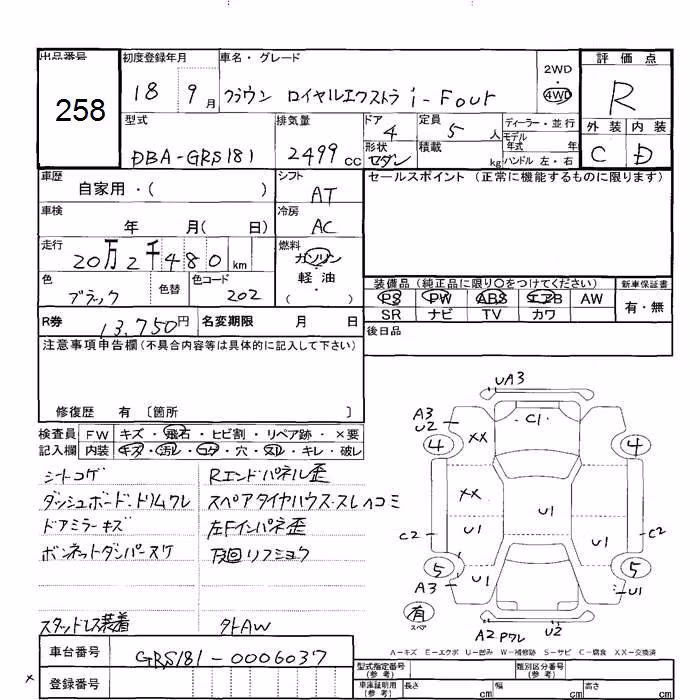 出品番号
258
初度登録年月
18 9月
車名・グレード
クラウン ロイヤルエクストラ i-Four
2WD
4WD
評価点
R
外装 内装
C D
型式
DBA-GRS181
排気量
2499cc
ドア
4
形状
セダン
定員
5人
積載
kg
ディーラー・並行
モデル
年式 年
ハンドル 左・右
車歴
自家用・( )
シフト
AT
車検
年 月( 日)
冷房
AC
走行
20万2千480km
燃料
ガソリン
軽・油
( )
色
ブラック
色替
色コード
202
R券
13,750円
名変期限 月 日
セールスポイント(正常に機能するものに限ります)
装備品(純正品に限り○をつけてください)
PS PW ABS エアB AW
SR ナビ TV カワ
新車保証書
有・無
後日品
注意事項申告欄(不具合内容等は具体的に記入して下さい)
修復歴 有〔箇所 〕
検査員
記入欄
FW キズ・飛石・ヒビ割・リペア跡・×要
内装 キズ・汚レ・コゲ・穴・スレ・キレ・破レ
シートコゲ
ダッシュボード・トリムワレ
ドアミラーキズ
ボンネットダンパーヌケ
スタッドレス装着
Rエンドパネル歪
スペアタイヤハウス・スレヘコミ
左Fインパネ歪
下回リフショク
外AW
UA3
A3
U2
XX
C1
4
4
XX
U1
U1
U1
C2
C2
5
5
A3
U1
U1
有
スペア
A2 Pワレ
U2
A-キズ E-エクボ U-凹み W-補修跡 S-サビ C-腐食 XX-交換済
車台番号
GRS181-0006037
登録番号
型式指定番号
(参考)
類別区分番号
(参考)
車庫証明用
(参考)
長さ cm
幅 cm
高さ cm